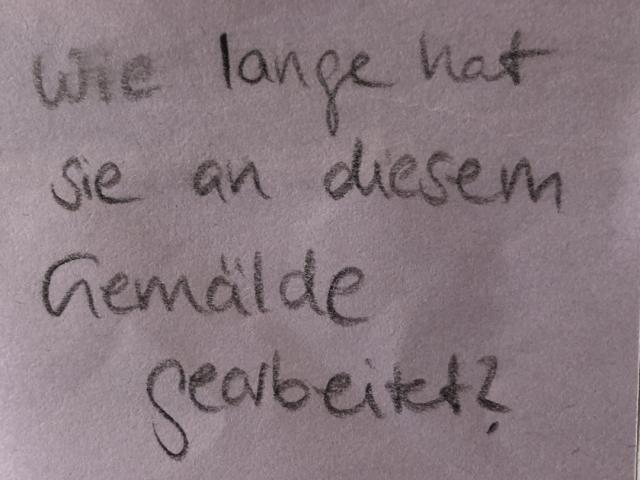 Wie lange hat
sie an diesem
Gemälde
gearbeitet?